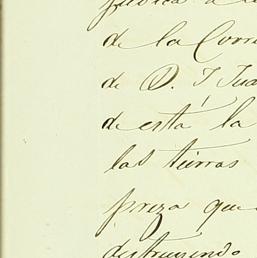 de la Corr
de D. J. Jua
de esta la
las tierras
preza que
destruiendo